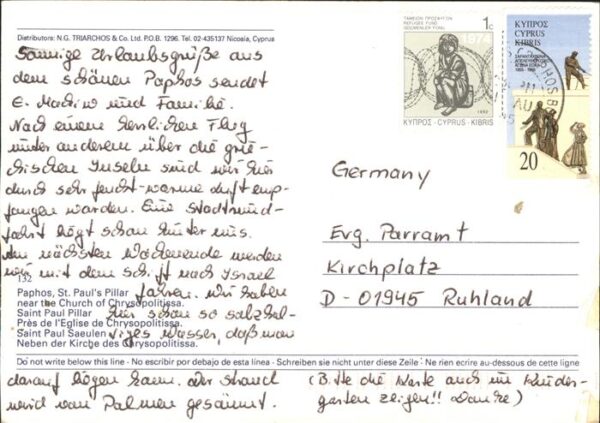 Distributors: N.G. TRIARCHOS & Co. Ltd. P.O.B. 1296. Tel. 02-435137 Nicosia, Cyprus
Sonnige Urlaubsgrüße aus
dem schönen Paphos sendet
und Familie.
Nach einem herrlichen Flug
unter anderem über die grie-
chischen Inseln sind wir hier
durch sehr feucht-warme Luft emp-
fangen worden. Eine Stadtrund-
fahrt liegt schon hinter uns.
Am nächsten Wochenende werden
wir mit dem Schiff nach Israel
132
Paphos, St. Paul's Pillar fahren. Wir haben
near the Church of Chrysopolitissa.
Saint Paul Pillar hier schon so salzhal-
Près de l'Eglise de Chrysopolitissa.
Saint Paul Saeulen tiges Wasser, daß man
Neben der Kirche des Chrysopolitissa.
Do not write below this line - No escribir por debajo de esta línea - Schreiben sie nicht unter diese Zeile - Ne rien ecrire au-dessous de cette ligne
darauf liegen kann. Der Strand
wird von Palmen gesäumt.
(Bitte die Karte auch im Kinder-
garten zeigen!! Danke)
1c
1974
1992
ΚΥΠΡΟΣ - CYPRUS - KIBRIS
ΚΥΠΡΟΣ
CYPRUS
KIBRIS
20
Germany
Evg. Parramt
Kirchplatz
D - 01945 Ruhland